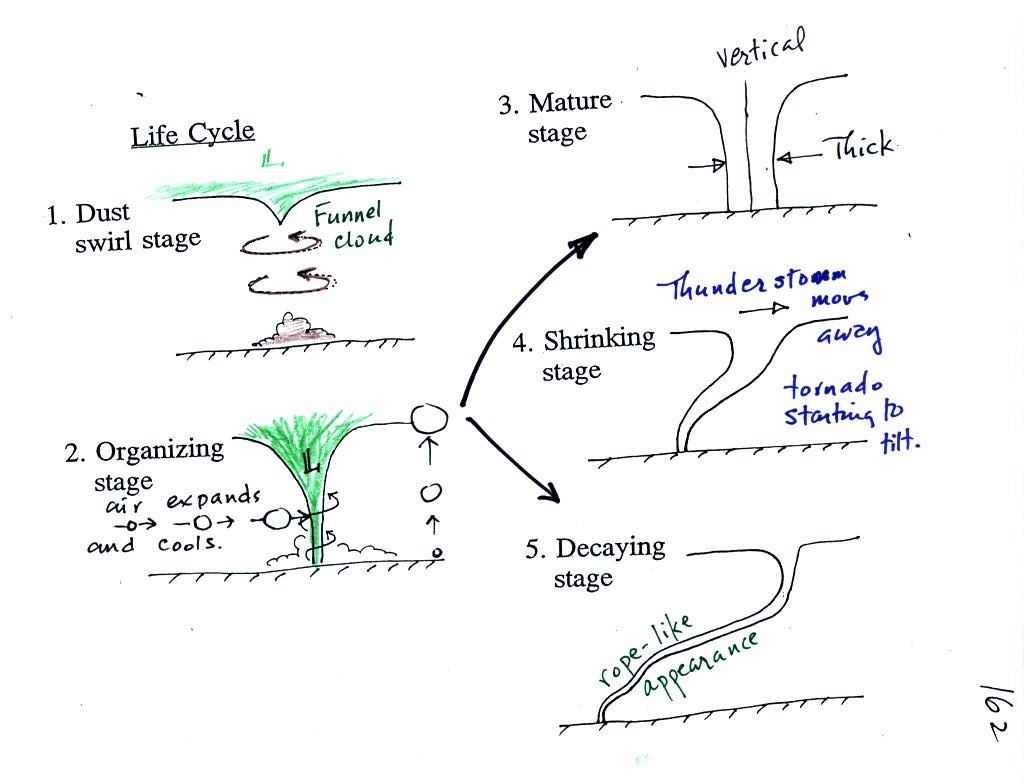 Life Cycle
L
1. Dust
swirl stage
Funnel
cloud
2. Organizing
stage
L
air expands
and cools.
3. Mature
stage
vertical
Thick
4. Shrinking
stage
Thunderstorm
movs
away
tornado
starting to
tilt.
5. Decaying
stage
rope-like
appearance
162